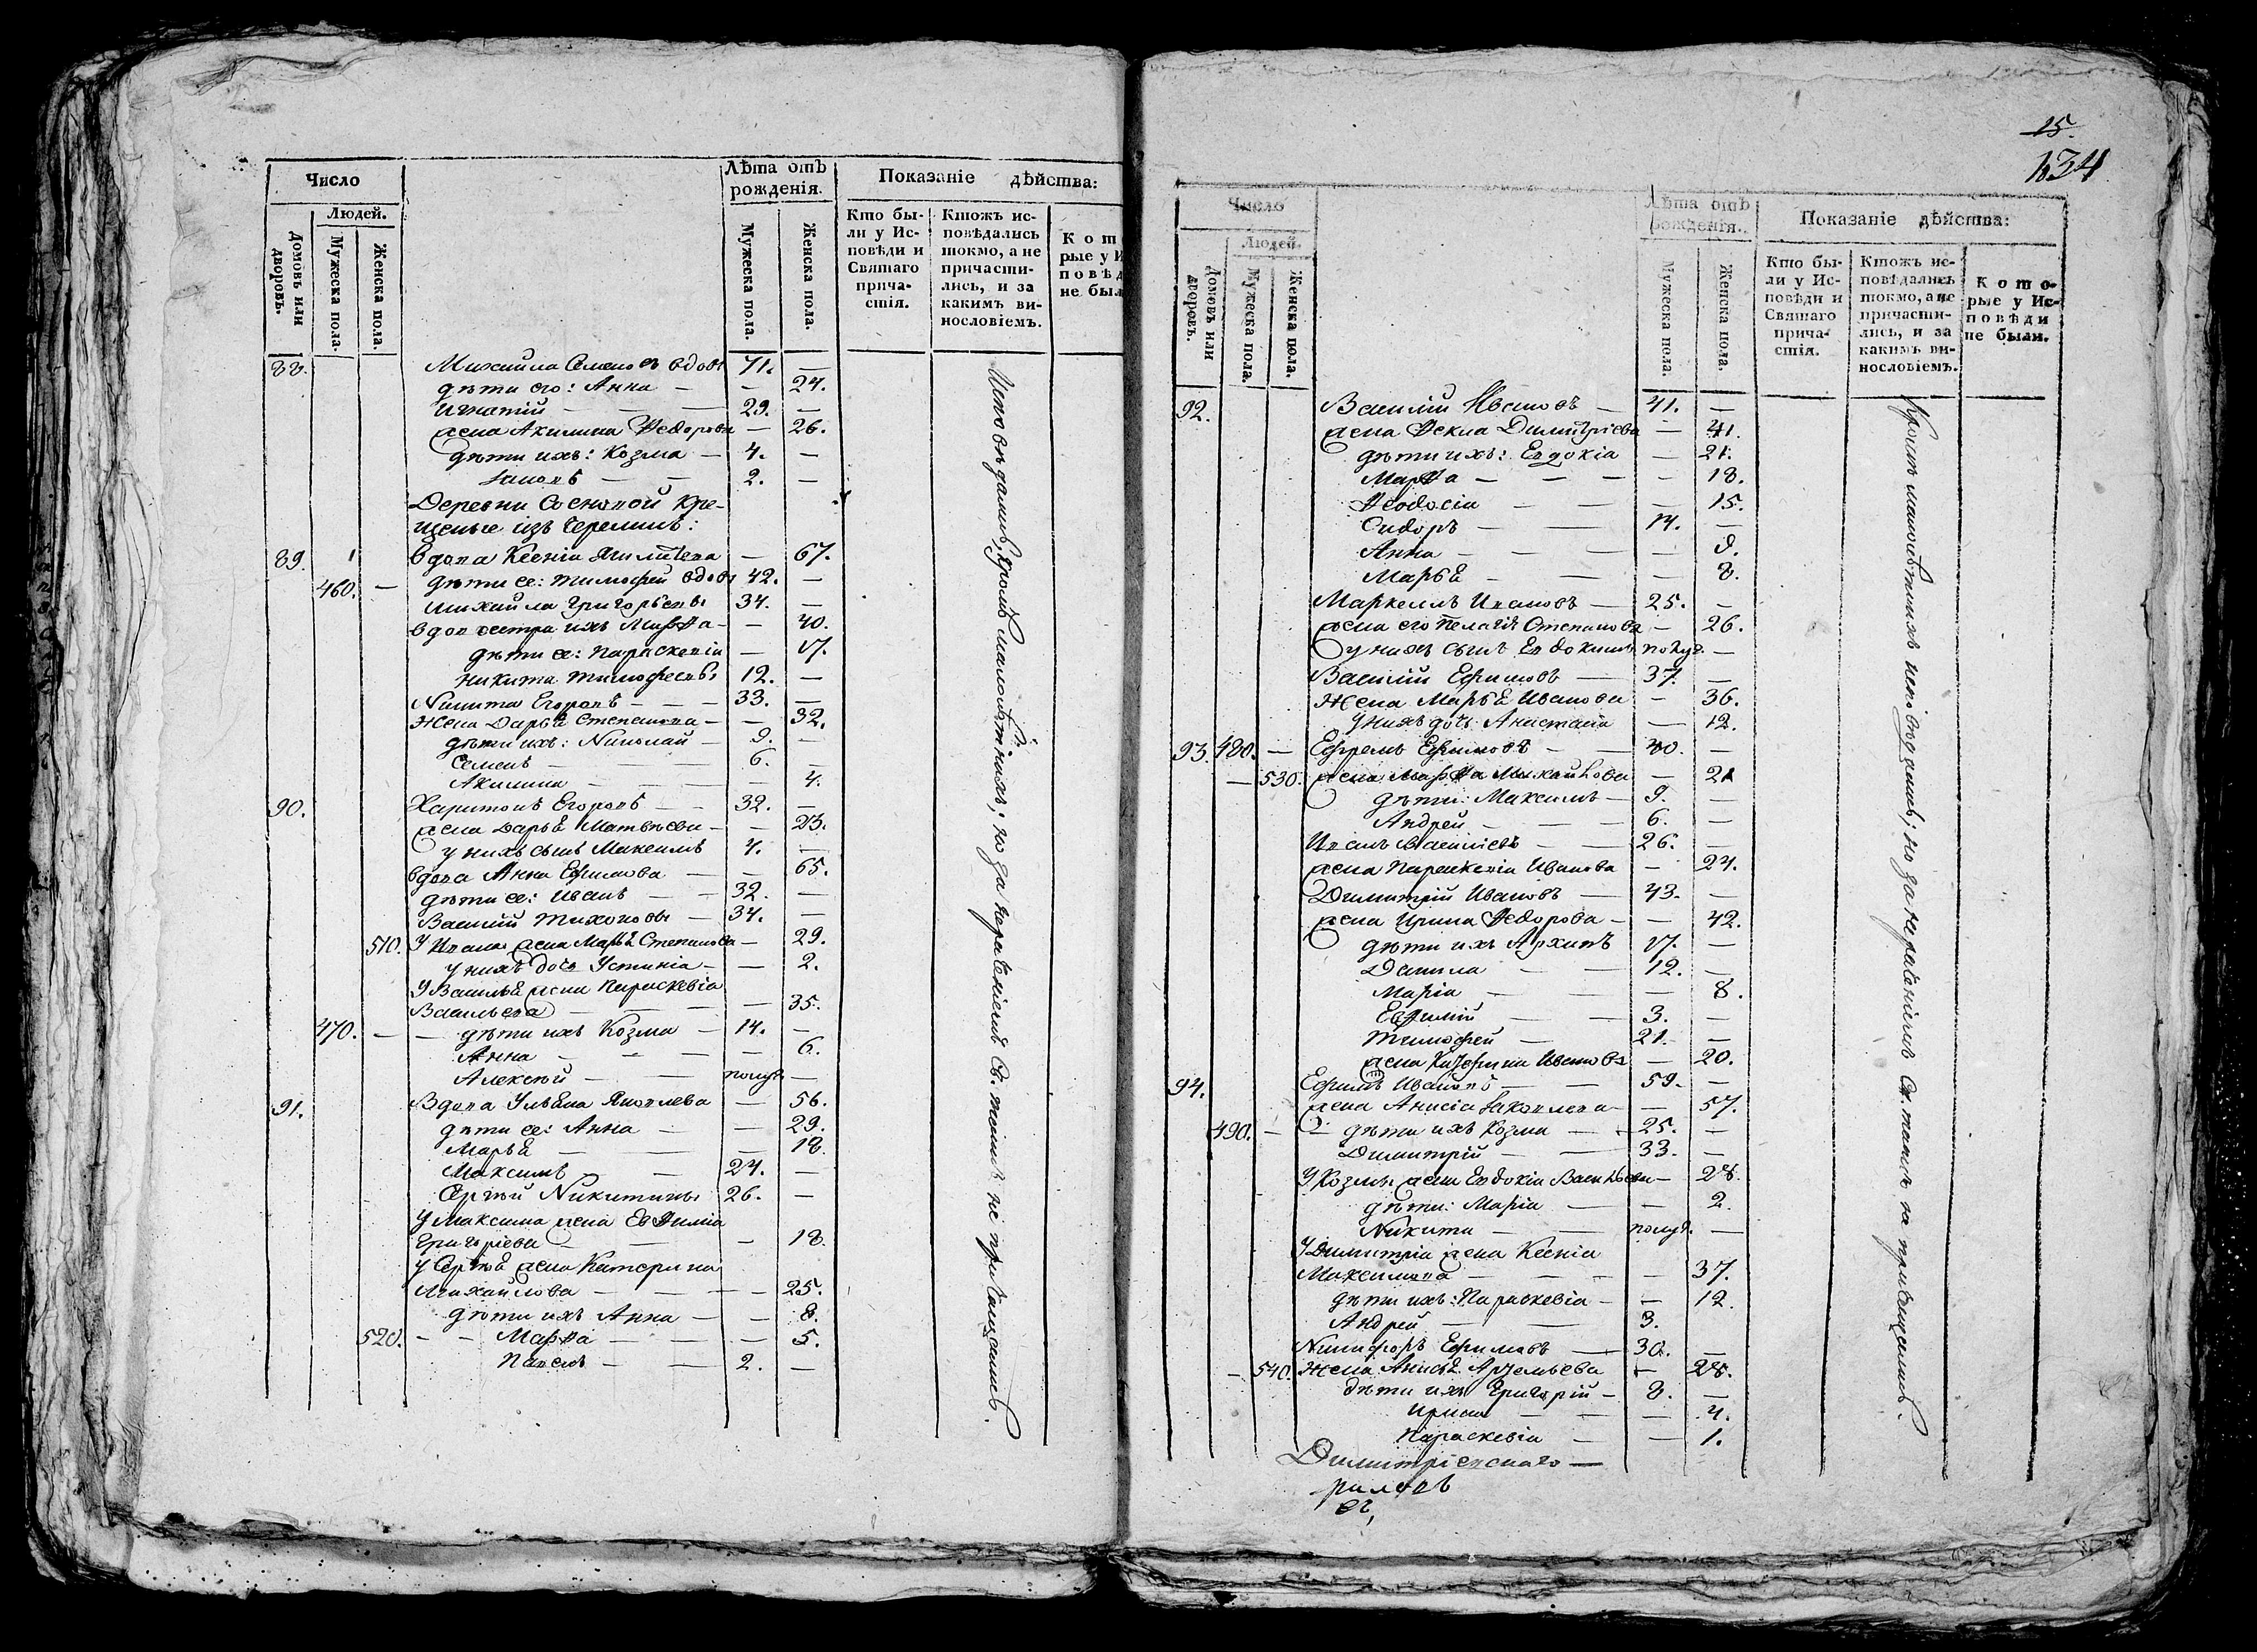 Число
Людей.
Домовъ или дворовъ.
Мужеска пола.
Женска пола.
Лѣта отъ рожденія.
Мужеска пола.
Женска пола.
Показаніе дѣйства:
Кто бы-
ли у Ис-
повѣди и
Святаго
прича-
стія.
Ктожъ ис-
повѣдались
токмо, а не
причасти-
лись, и за
какимъ ви-
нословіемъ.
Кот
рые у И
повѣд
не был
88. Михайла Семеновъ вдовъ 71. —
дѣти его: Анна — — 24.
Игнатій — — 29. —
жена Акилина Ѳедорова — 26.
дѣти ихъ: Козма — 4. —
— — 2. —
Деревни Сосновой Кре-
щеные изъ Черемисъ:
89. 1 вдова Ксенія — 67.
460. — дѣти ее: Тимофей вдовъ 42. —
Михайла Григорьевы 34. —
вдов сестра ихъ Марѳа — — 40.
дѣти ее: Параскевія — 17.
Никита Тимофеевъ 12. —
Никита Егоровъ — — 33. —
Жена Дарья Степанова — — 32.
дѣти ихъ: Николай — 9. —
Семенъ — — 6. —
Акилина — — — 4.
90. Харитонъ Егоровъ — — 32. —
жена Дарья Матвѣева — — 23.
у нихъ сынъ Максимъ 4. —
вдова Анна Ефимова — — 65.
дѣти ее: Иванъ — — 32. —
Василій Тихоновы — 34. —
510. У Ивана жена Марья Степанова — 29.
у нихъ дочь Устинія — — 2.
У Василья жена Параскевія
Васильева — — — 35.
470. — — дѣти ихъ Козма — 14. —
Анна — — — 6.
Алексѣй — — полуг. —
91. Вдова Ульяна Яковлева — 56.
дѣти ее: Анна — — 29.
Марья — — — 18.
Максимъ — — 24. —
Сергѣй Никитины 26. —
У Максима жена Евѳимія
Григоріева — — — 18.
у Сергѣя жена Катерина
Михайлова — — — — 25.
дѣти ихъ Анна — — 8.
520. — — Марѳа — — — 5.
Павелъ — — 2. —
Исповѣдались, кромѣ малолѣтнихъ; но за нераченіемъ Св. таинъ не причащались.
15.
134
Число
Людей.
Домовъ или дворовъ.
Мужеска пола.
Женска пола.
Лѣта отъ рожденія.
Мужеска пола.
Женска пола.
Показаніе дѣйства:
Кто бы-
ли у Ис-
повѣди и
Святаго
прича-
стія.
Ктожъ ис-
повѣдались
токмо, а не
причасти-
лись, и за
какимъ ви-
нословіемъ.
Кото-
рые у Ис-
повѣди
не были.
92. Василій Ивановъ — 41. —
жена Ѳекла Димитріева — 41.
дѣти ихъ: Евдокія — 21.
Марѳа — — — — 18.
Ѳеодосія — — — 15.
Сидоръ — — 14. —
Анна — — — — 9.
Марья — — — 8.
Маркеллъ Ивановъ — 25. —
жена его Пелагія Степанова — 26.
у нихъ сынъ Евдокимъ полуг. —
Василій Ефимовъ — 37. —
Жена Марья Иванова — 36.
у нихъ дочь Анастасія — 12.
93. 480. — Ефремъ Ефимовъ — — 30. —
— 530. жена Марѳа Михайлова — 21
дѣти: Максимъ — 9. —
Андрей — — — 6. —
Иванъ Васильевъ — — 26. —
жена Параскевія Иванова — 24.
Димитрій Ивановъ — 43. —
жена Ирина Ѳедорова — — 42.
дѣти ихъ Архипъ 17. —
Данила — — 12. —
Марія — — — 8.
Евѳимій — — 3. —
Тимофей — — 21. —
жена Катерина Иванова — 20.
94. Ефимъ Ивановъ — — 59. —
жена Анисія Яковлева — — 57.
490. — — дѣти ихъ Козма — — 25. —
Димитрій — — 33. —
У Козмы жена Евдокія Васильева — 28.
дѣти: Марія — — 2.
Никита — — полуг. —
У Димитрія жена Ксенія
Максимова — — — — 37.
дѣти ихъ: Параскевія — — 12.
Андрей — — 3.
Никифоръ Ефимовъ — 30. —
— 540. Жена Анисья Артемьева — 28.
дѣти ихъ Григорій — 8. —
Ирина — — — 4.
Параскевія — — 1.
Димитріевскаго —
Кромѣ малолѣтнихъ исповѣдались; но за нераченіемъ Св. таинъ не причащались.